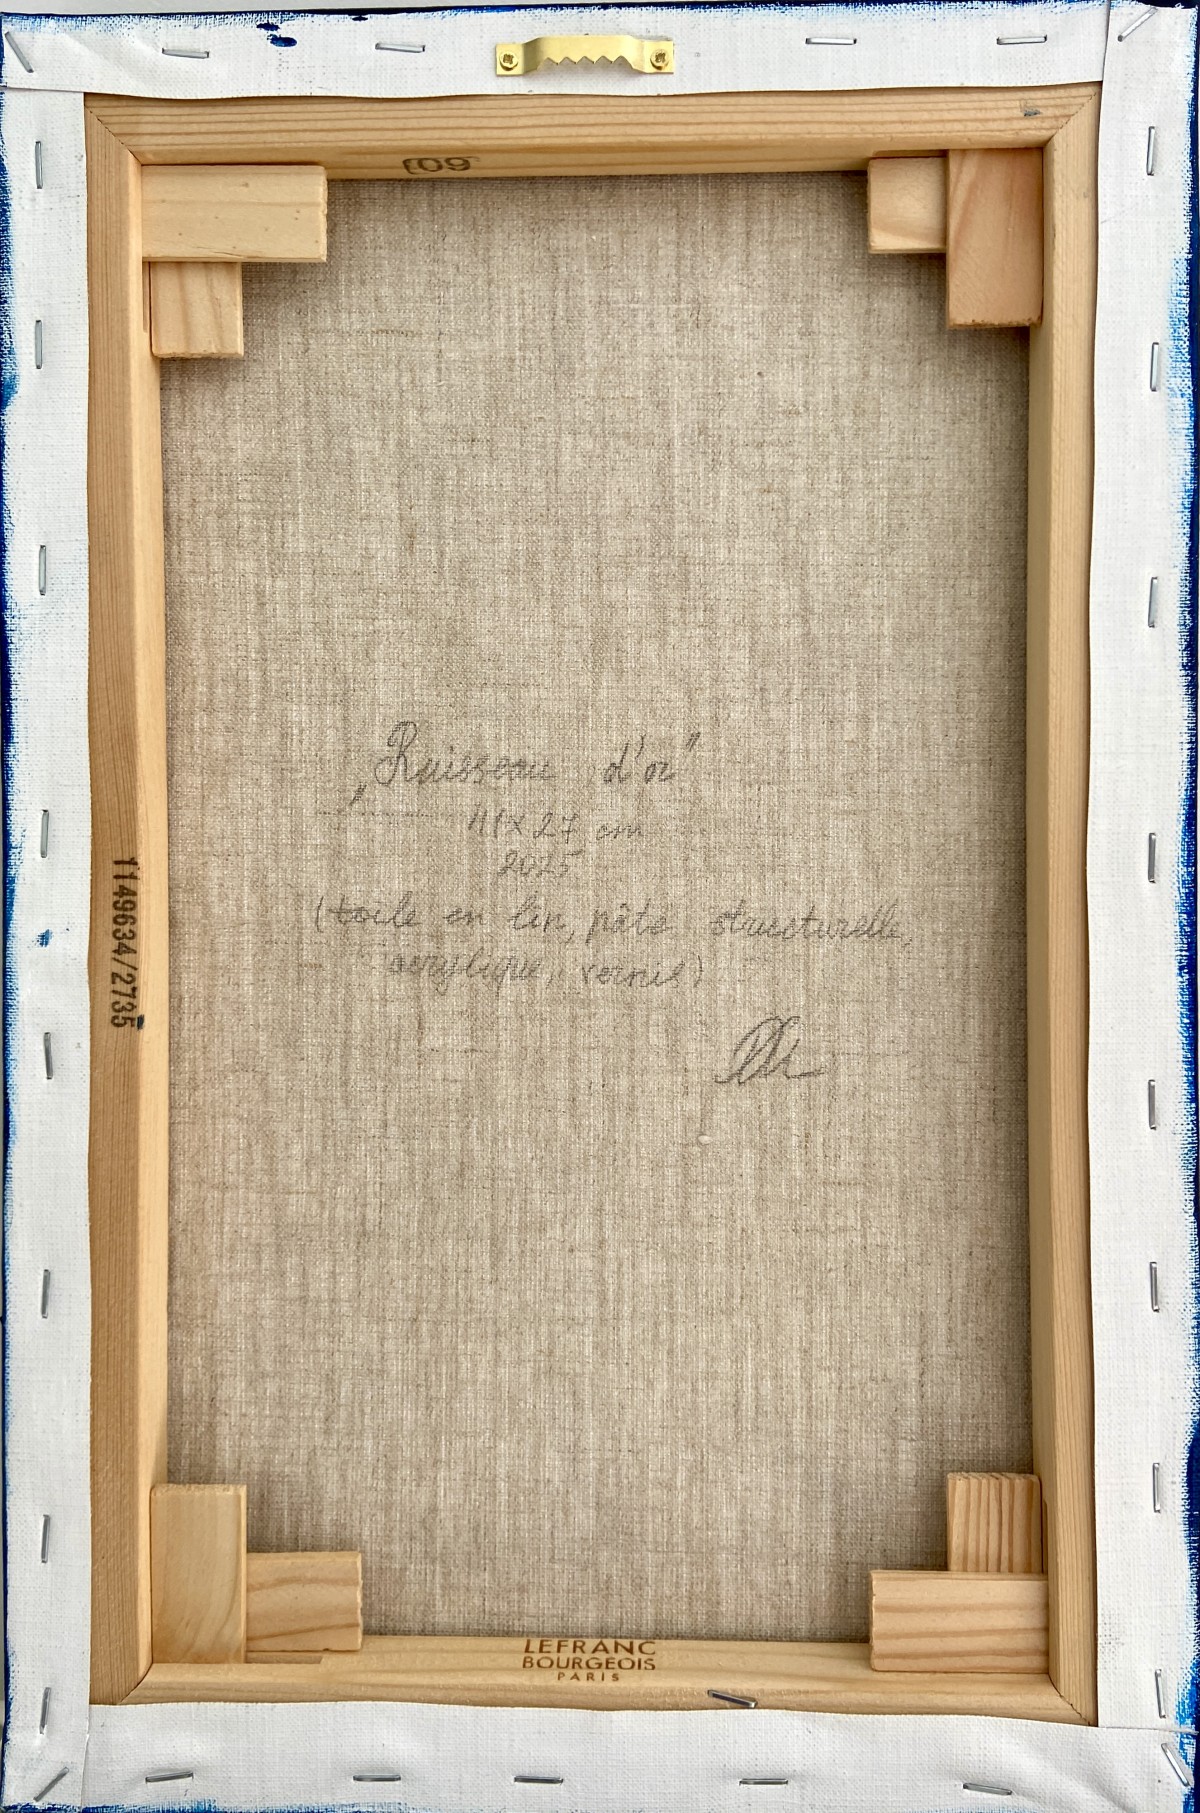 „Ruisseau d'or"
41x27 cm
2025
(toile en lin, pâte structurelle,
acrylique, vernis)
1149634/2735
LEFRANC
BOURGEOIS
PARIS